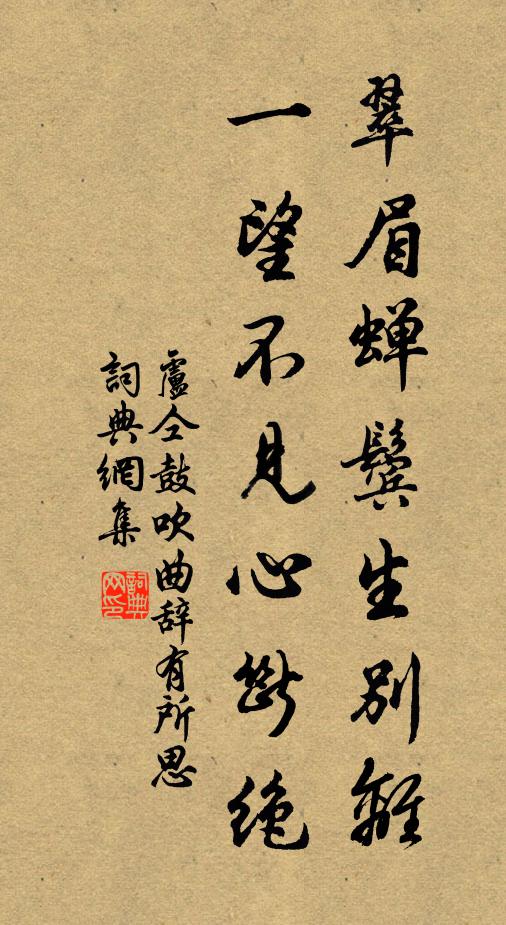 翠眉蝉鬢生別離
一望不見心斷絶
盧仝鼓吹曲辞有所思
詞典網集
詞典
网印